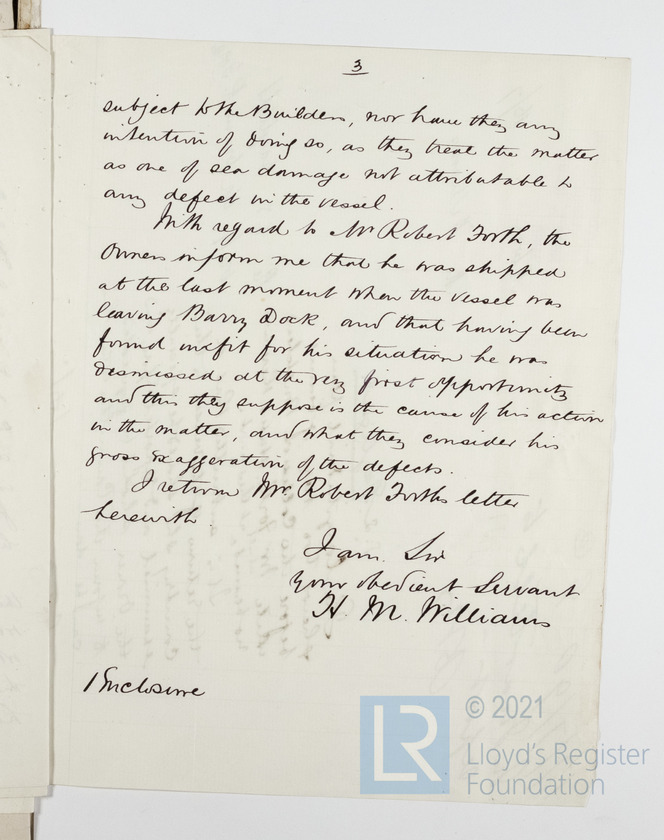 3
subject to the Builders, nor have they any
intention of doing so, as they treat the matter
as one of sea damage not attributable to
any defect in the vessel.
With regard to Mr Robert Forth, the
Owners inform me that he was shipped
at the last moment when the vessel was
leaving Barry Dock, and that having been
found unfit for his situation he was
dismissed at the very first opportunity
and this they suppose is the cause of his action
in the matter, and what they consider his
gross exaggeration of the defects.
I return Mr. Robert Forths letter
herewith.
I am Sir
Your obedient Servant
H. M. Williams
1 Enclosure
LR
© 2021
Lloyd's Register
Foundation